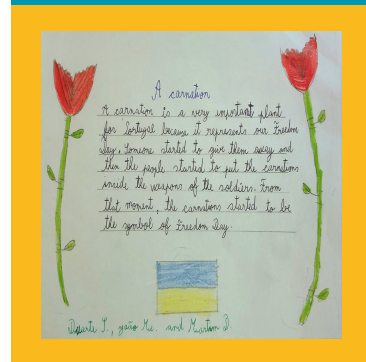 A carnation
A carnation is a very important plant
for Portugal because it represents our Freedom
Day. Someone started to give them away and
then the people started to put the carnations
inside the weapons of the soldiers. From
that moment, the carnations started to be
the symbol of Freedom Day
Duarte S., João Me. and Martim B.